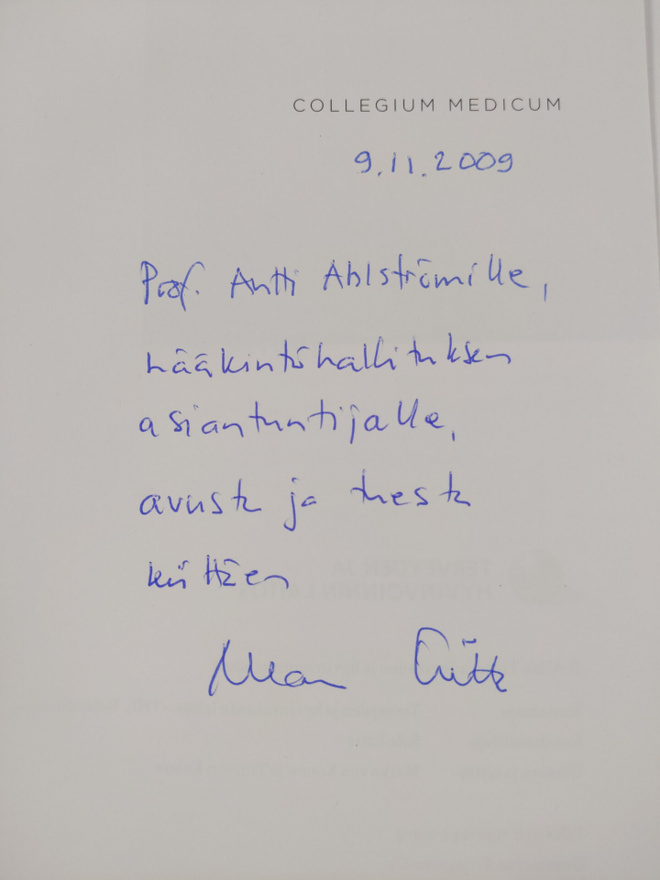 COLLEGIUM MEDICUM
9.11.2009
Prof. Antti Ahlströmille,
lääkintöhallituksen
asiantuntijalle,
avusta ja tuesta
kiittäen